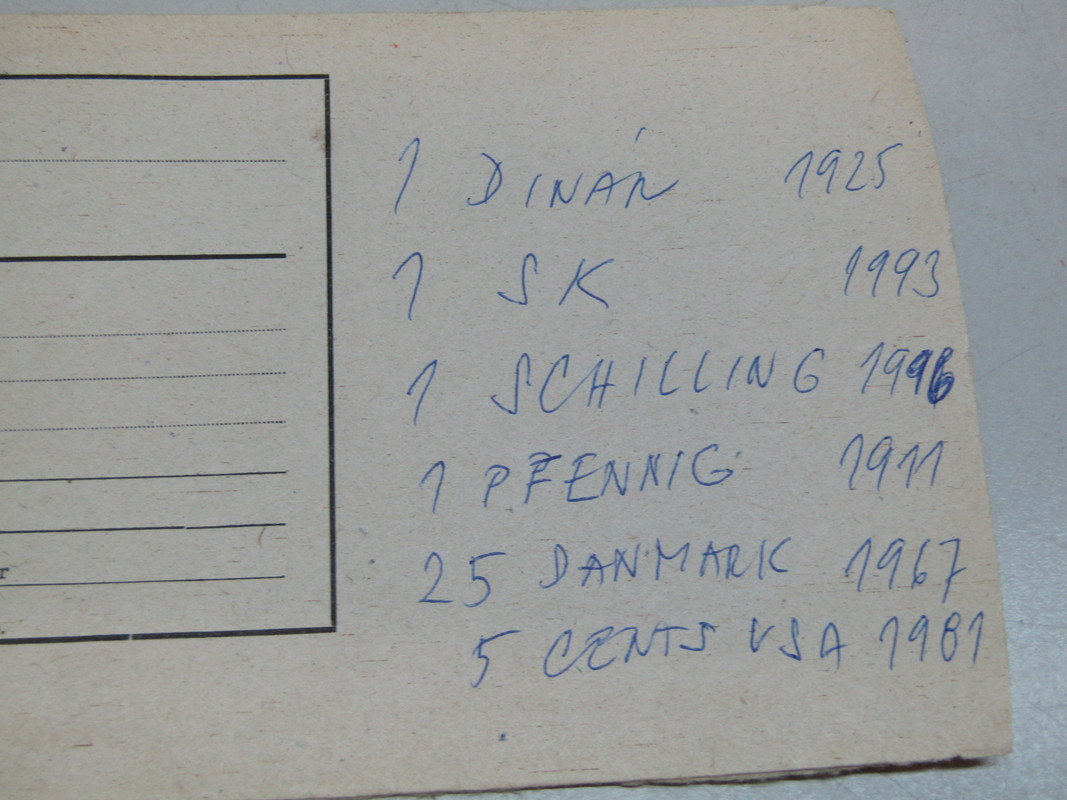 1 DINÁR 1925
1 SK 1993
1 SCHILLING 1996
1 PFENNIG 1911
25 DANMARK 1967
5 CENTS USA 1981
r